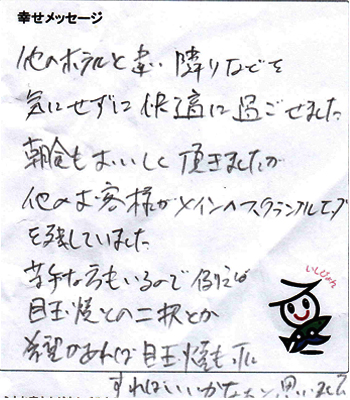 幸せメッセージ
他のホテルと違い隣りなどを
気にせずに快適に過ごせました
朝食もおいしく頂きましたが
他のお客様がメインのスクランブルエッグ
を残していました
苦手な方もいるので例えば
目玉焼との二択とか
希望があれば目玉焼も可に
すればいいかなぁと思いました